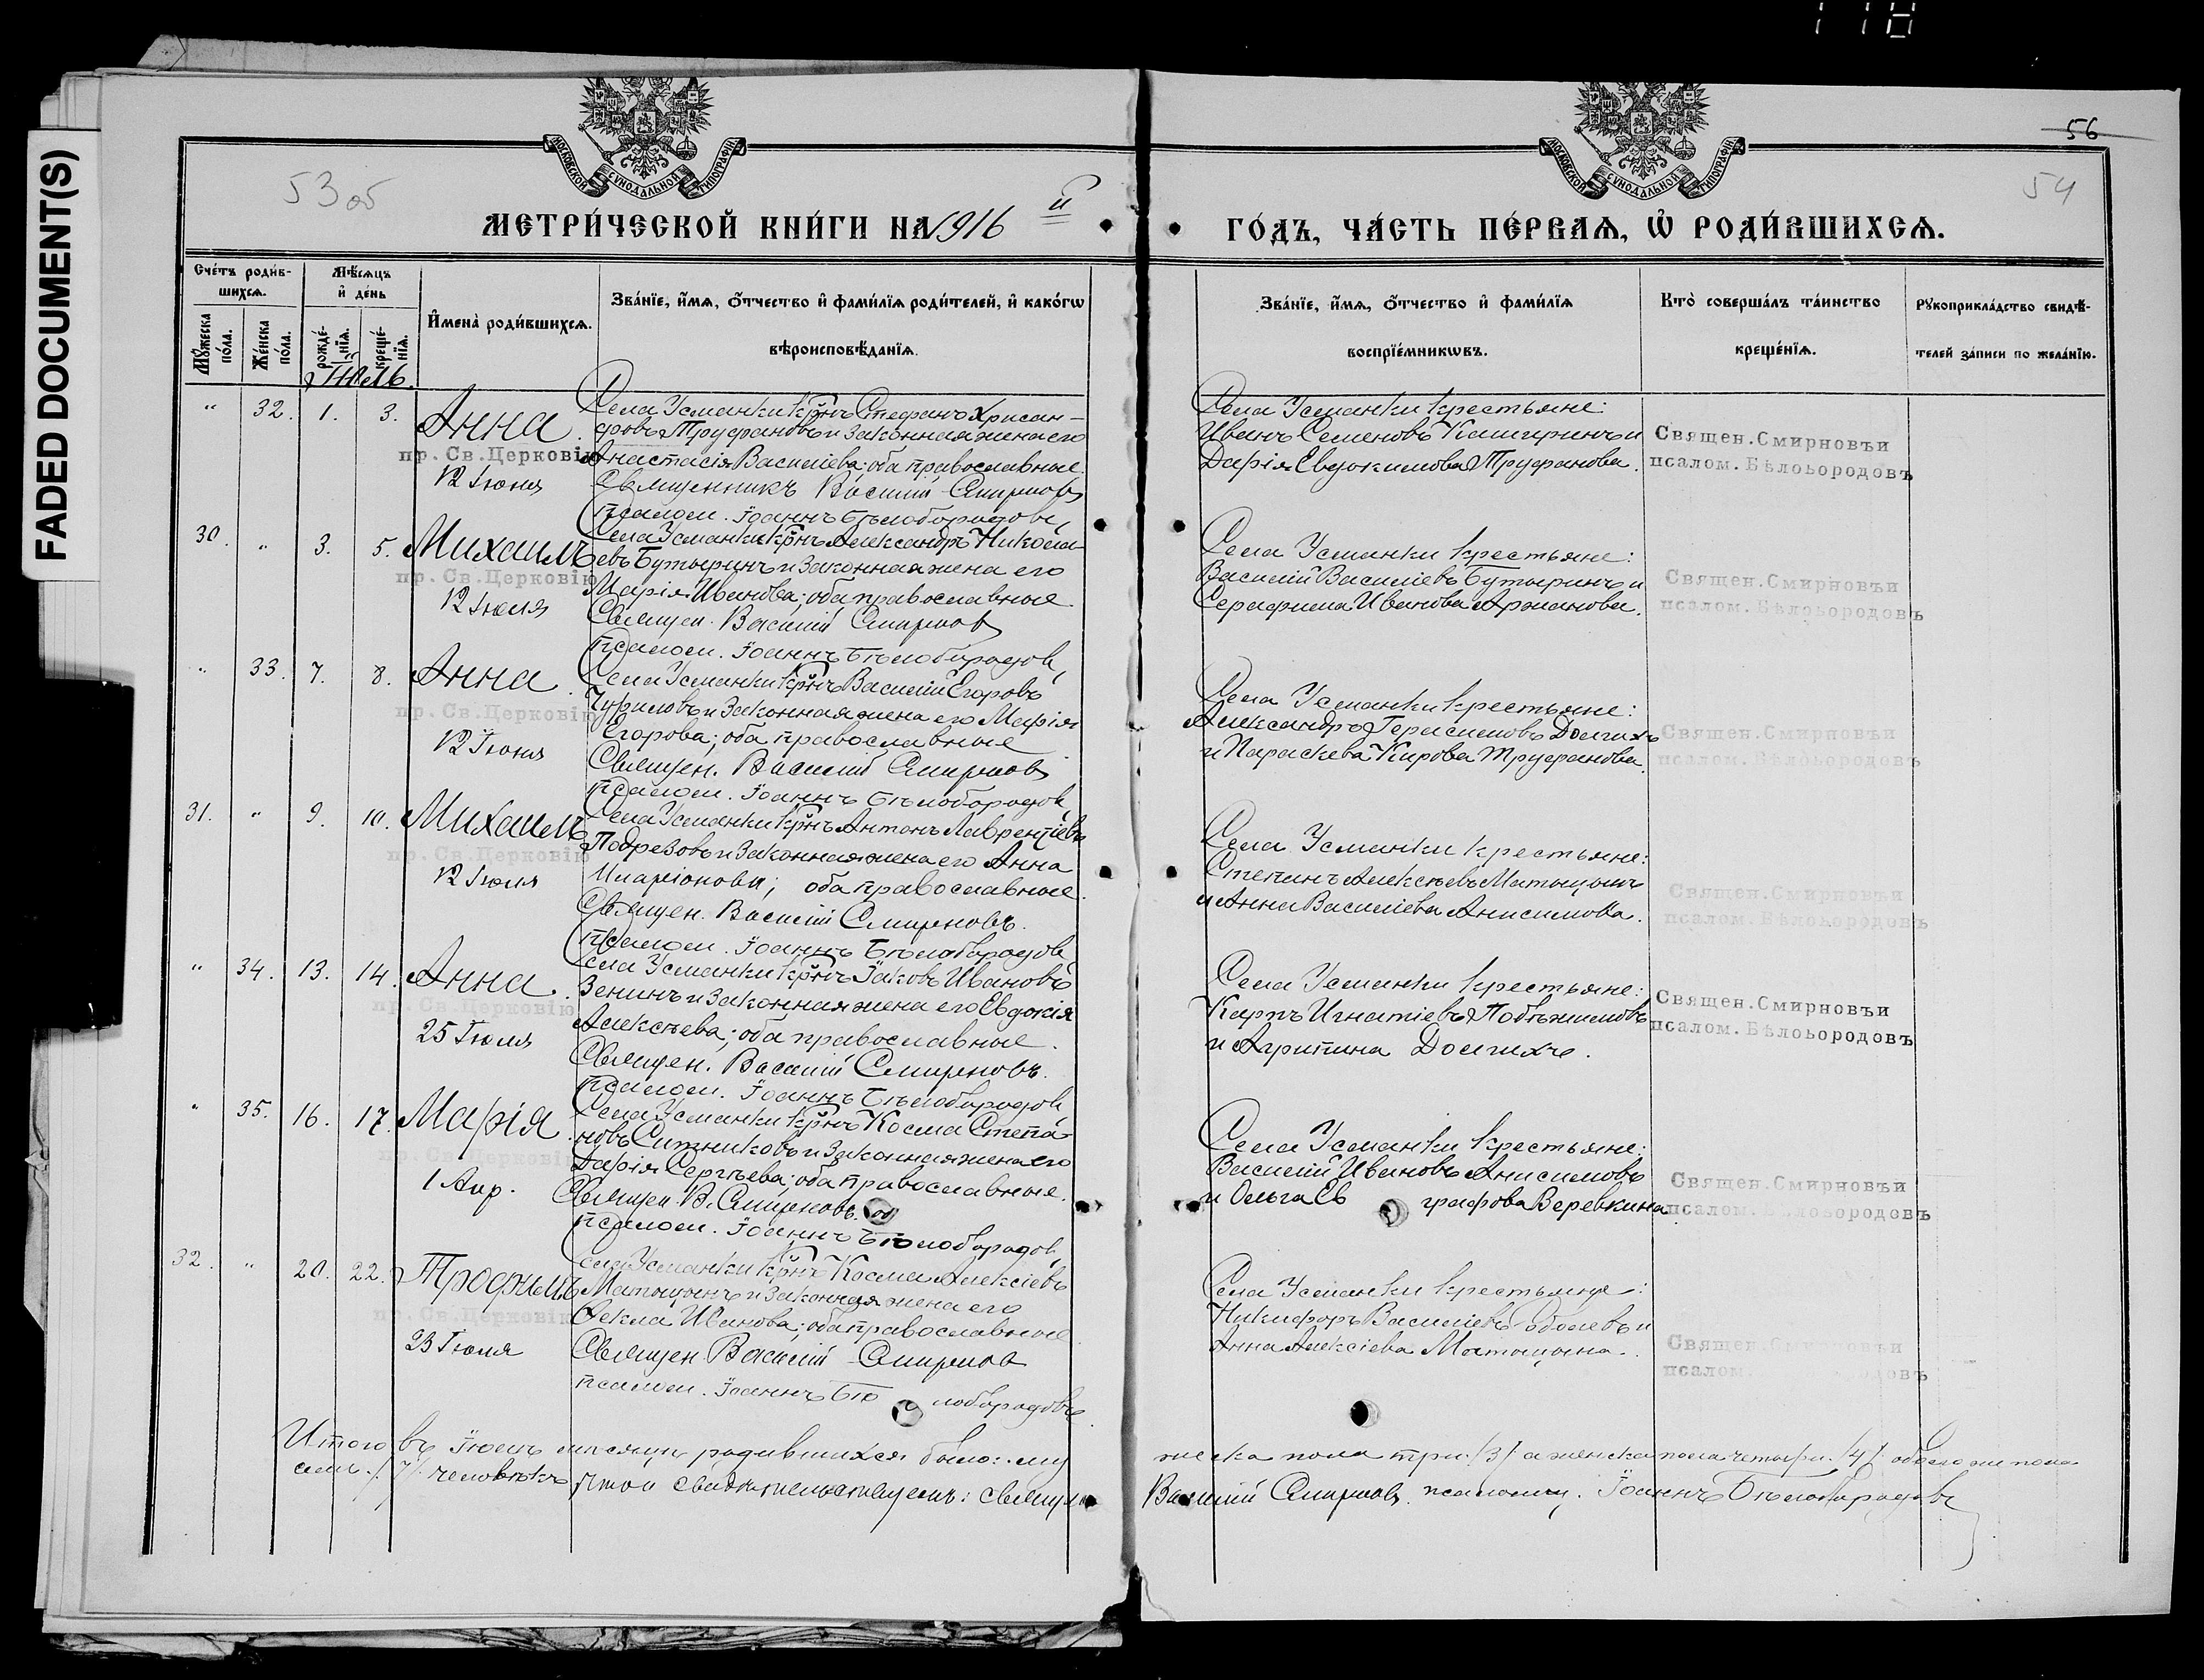 118
FADED DOCUMENT(S)
МОСКОВСКОЙ СѴНОДАЛЬНОЙ ТИПОГРАФІИ
МОСКОВСКОЙ СѴНОДАЛЬНОЙ ТИПОГРАФІИ
56
53 об
54
МЕТРИ́ЧЕСКОЙ КНИ́ГИ НА 1916 й
ГО́ДЪ, ЧА́СТЬ ПЕ́РВАѦ, Ѡ҆ РОДИ́ВШИХСѦ.
Сче́тъ роди́в-
шихсѧ.
Мꙋ́жеска по́ла.
Же́нска по́ла.
Мѣ́сѧцъ
и҆ де́нь
рожде́-
нїѧ.
креще́-
нїѧ.
И҆мена̀ роди́вшихсѧ.
Зва́нїе, и҆́мѧ, ѻ҆́тчество и҆ фами́лїѧ роди́телей, и҆ како́гѡ
вѣроисповѣ́данїѧ.
Зва́нїе, и҆́мѧ, ѻ҆́тчество и҆ фами́лїѧ
воспрїе́мникѡвъ.
Кто̀ соверша́лъ та́инство
креще́нїѧ.
Рꙋкоприкла́дство свидѣ́-
телей за́писи по жела́нїю.
Іюль.
" 32. 1. 3. Анна.
пр. Св. Церковію
12 Іюня
Села Усманки кр-нъ Стефанъ Хрисан-
фовъ Труфановъ и законная жена его
Анастасія Василіева; оба православные.
Священникъ Василій Смирновъ
псалом. Іоаннъ Бѣлобородовъ
Села Усманки крестьяне:
Иванъ Семеновъ Каширинъ и
Дарія Евдокимова Труфанова.
Священ. Смирновъ и
псалом. Бѣлобородовъ
30. " 3. 5. Михаилъ
пр. Св. Церковію
12 Іюля
Села Усманки кр-нъ Александръ Никола-
евъ Бутыринъ и законная жена его
Марія Иванова; оба православные.
Священ. Василій Смирновъ
псалом. Іоаннъ Бѣлобородовъ
Села Усманки крестьяне:
Василій Василіевъ Бутыринъ и
Серафима Иванова Аржанова.
Священ. Смирновъ и
псалом. Бѣлобородовъ
" 33. 7. 8. Анна.
пр. Св. Церковію
12 Іюня
Села Усманки кр-нъ Василій Егоровъ
Чуриловъ и законная жена его Марія
Егорова; оба православные
Священ. Василій Смирновъ
псалом. Іоаннъ Бѣлобородовъ
Села Усманки крестьяне:
Александръ Герасимовъ Долгихъ
и Параскева Кирова Труфанова.
Священ. Смирновъ и
псалом. Бѣлобородовъ
31. " 9. 10. Михаилъ
пр. Св. Церковію
12 Іюля
Села Усманки кр-нъ Антонъ Лаврентіевъ
Подрезовъ и законная жена его Анна
Иларіонова; оба православные.
Священ. Василій Смирновъ.
псалом. Іоаннъ Бѣлобородовъ
Села Усманки крестьяне:
Степанъ Алексѣевъ Матыцынъ
и Анна Василіева Анисимова.
Священ. Смирновъ и
псалом. Бѣлобородовъ
" 34. 13. 14. Анна.
пр. Св. Церковію
25 Іюля
Села Усманки кр-нъ Іаковъ Ивановъ
Зенинъ и законная жена его Евдокія
Алексѣева; оба православные.
Священ. Василій Смирновъ.
псалом. Іоаннъ Бѣлобородовъ
Села Усманки крестьяне:
Карпъ Игнатіевъ Побѣжимовъ
и Агрипина Долгихъ.
Священ. Смирновъ и
псалом. Бѣлобородовъ
" 35. 16. 17. Марія.
пр. Св. Церковію
1 Апр.
Села Усманки кр-нъ Косма Степа-
новъ Ситниковъ и законная жена его
Дарія Сергѣева; оба православные.
Священ. В. Смирновъ.
псалом. Іоаннъ Бѣлобородовъ
Села Усманки крестьяне:
Василій Ивановъ Анисимовъ
и Ольга Ев графова Веревкина.
Священ. Смирновъ и
псалом. Бѣлобородовъ
32. " 20. 22. Трофимъ
пр. Св. Церковію
23 Іюля
Села Усманки кр-нъ Косма Алексіевъ
Матыцынъ и законная жена его
Ѳекла Иванова; оба православные.
Священ. Василій Смирновъ
псалом. Іоаннъ Бѣ лобородовъ.
Села Усманки крестьяне:
Никифоръ Василіевъ и
Анна Алексіева Матыцына.
Священ. Смирновъ и
псалом. Бѣлобородовъ
Итого въ Іюлѣ мѣсяцѣ родившихся было: му жеска пола три /3/ а женска пола четыре /4/ обоего же пола
семь /7/ человѣкъ Въ томъ свидѣтельствуемъ: священ. Василій Смирновъ. псаломщ. Іоаннъ Бѣлобородовъ